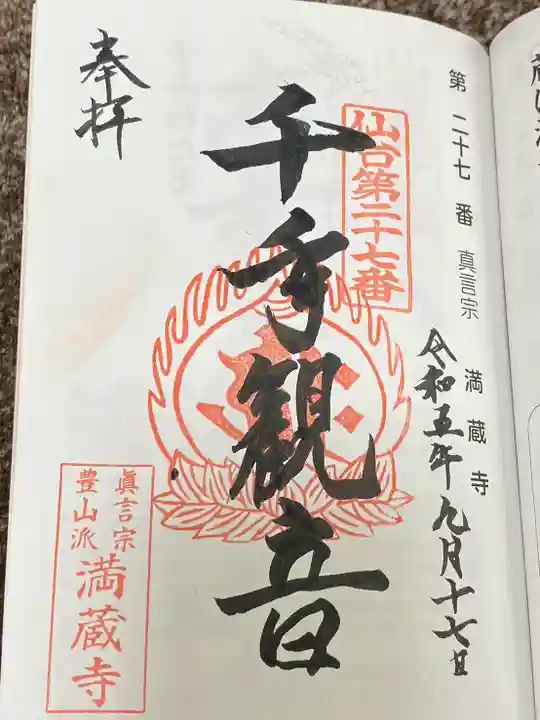 第二十七番 真言宗 満蔵寺
令和五年九月十七日
仙台第二十七番
千手観音
奉拝
眞言宗
豊山派
満蔵寺